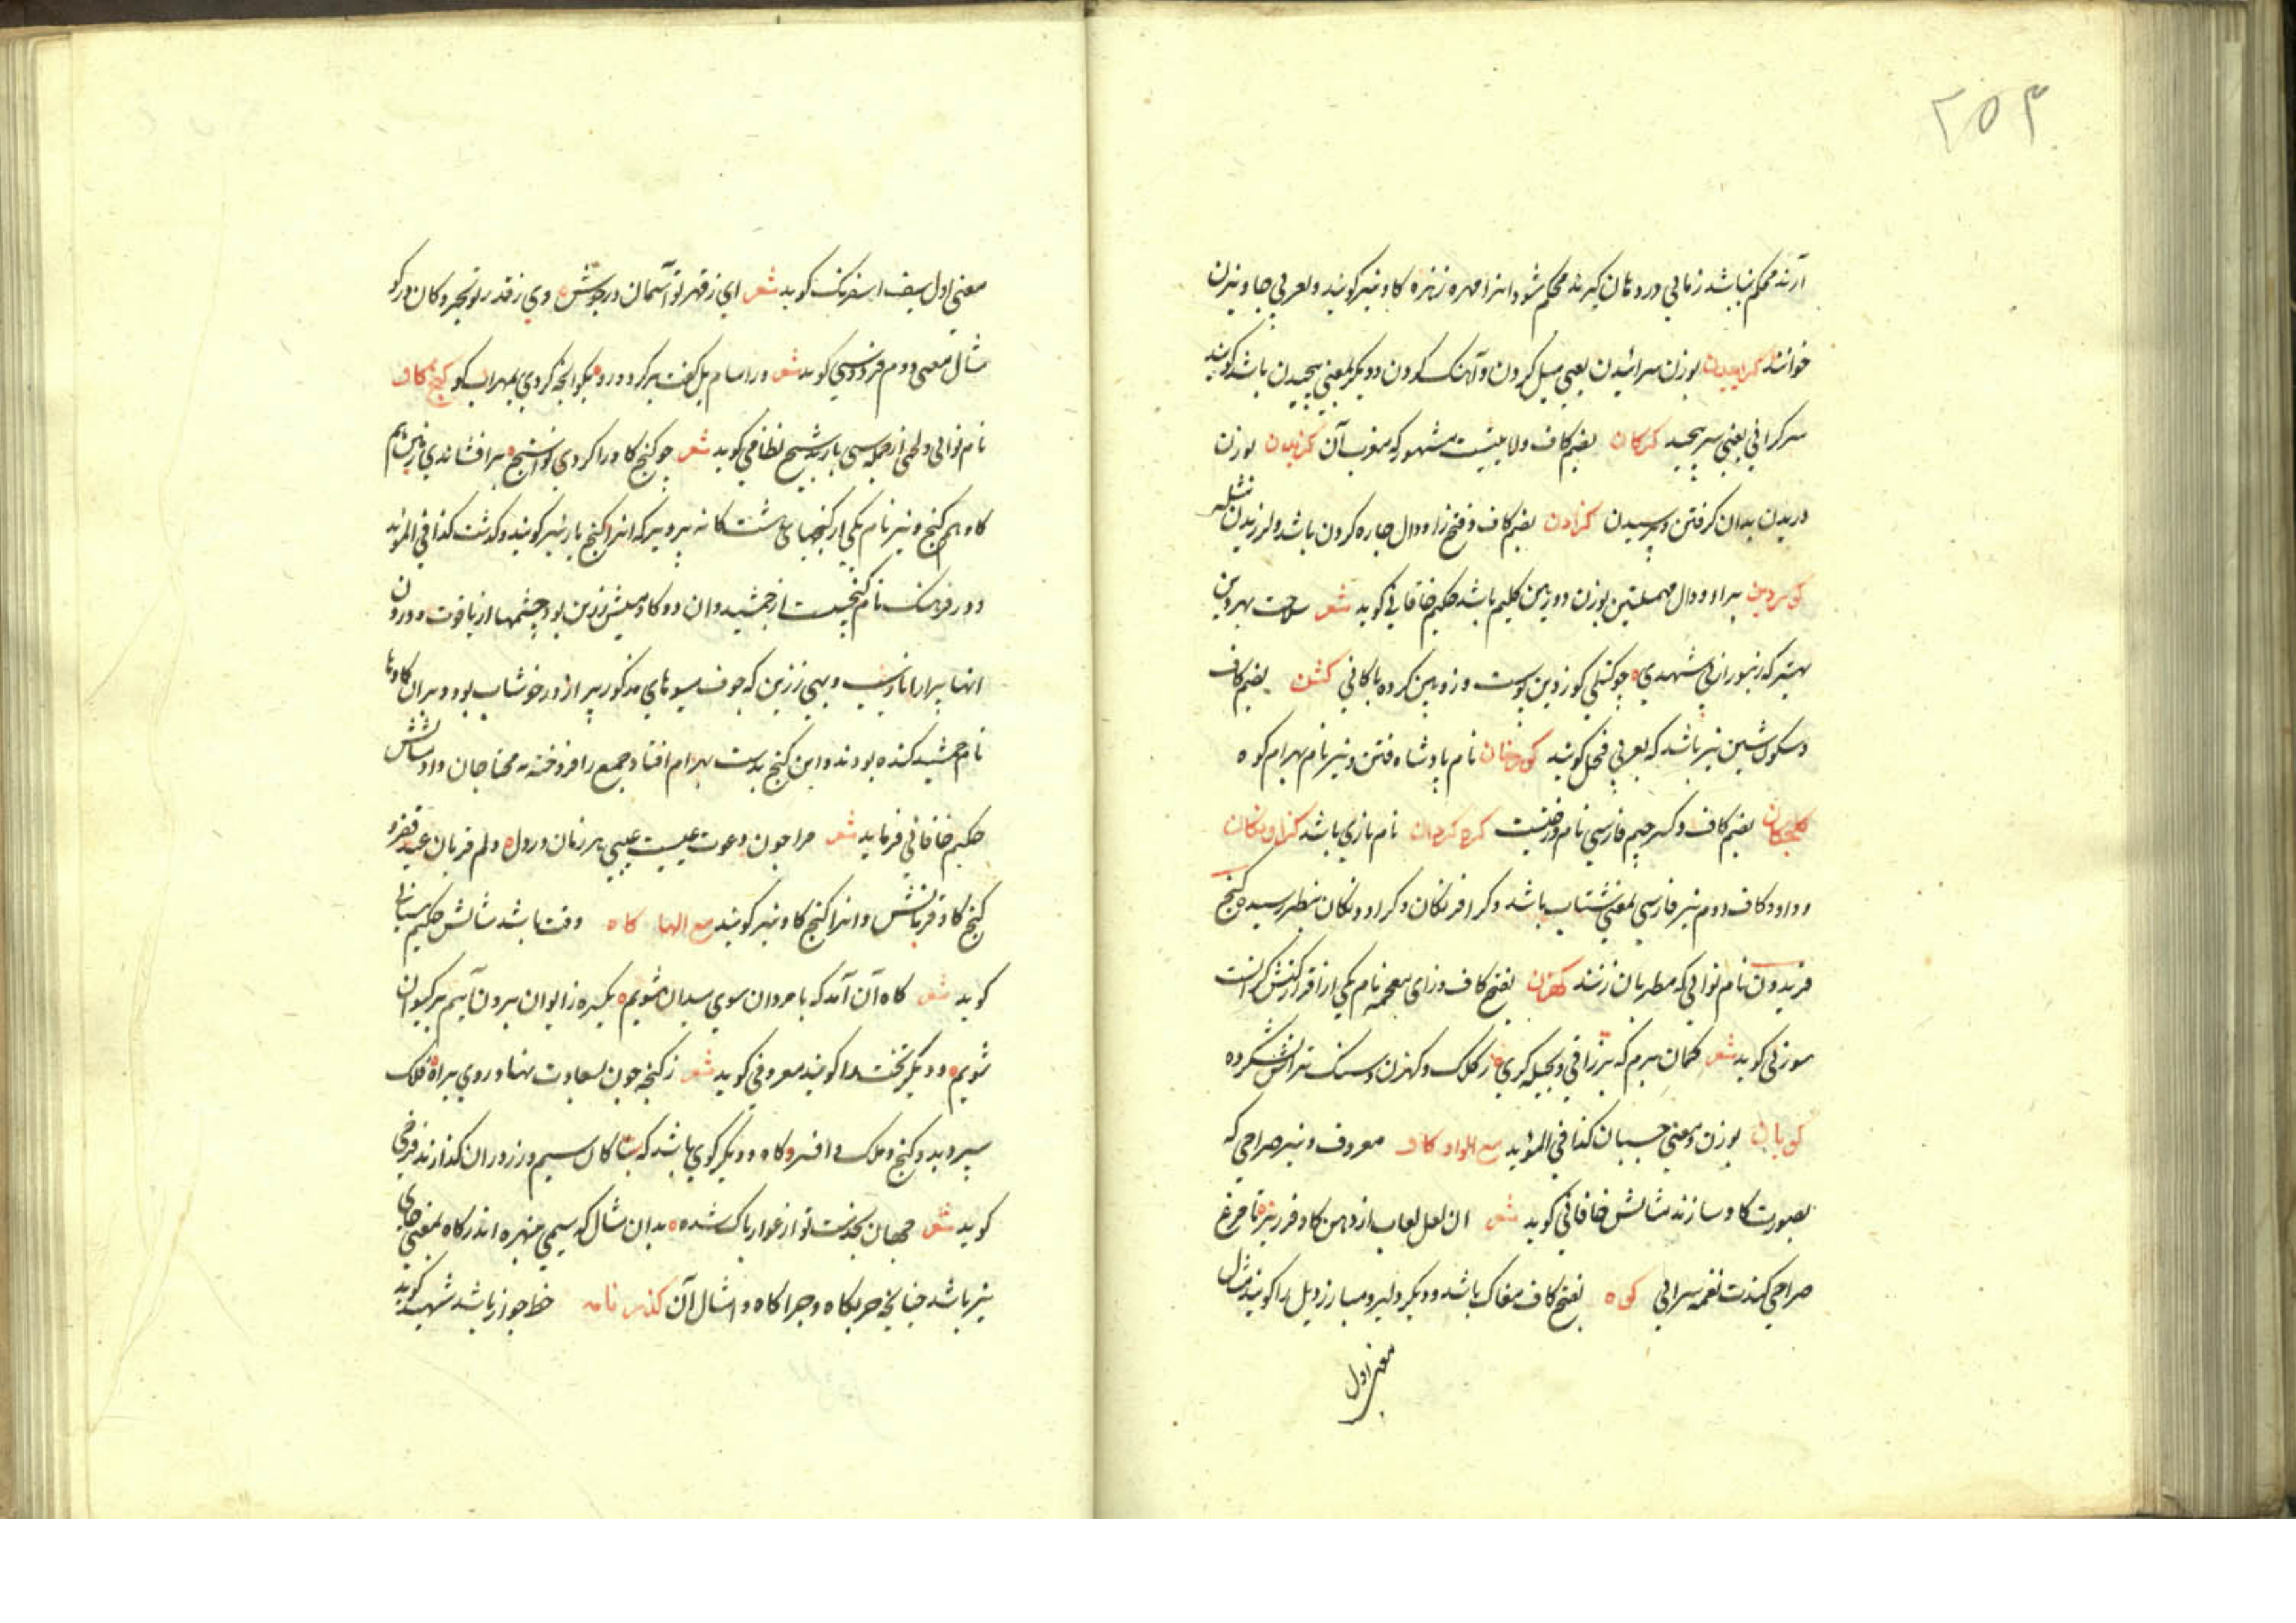 ۲۵۴
آرند محکم نباشد زمانی در دهان گیرند محکم شود و انرا مهره زهره کاو نیز کویند و بعربی جاویزن
خوانند کراییدن بوزن سرائیدن یعنی میل کردن و آهنک کردن و دیکر بمعنی پیچیدن باشد کویند
سرکرانی یعنی سرپیچید کرکان بضم کاف ولایتیست مشهور که معرب آن کزیدن بوزن
دریدن بدان کرفتن و پرسیدن کزادن بضم کاف و فتح زا و دال جاره کردن باشد و لرزیدن
کوردین برا و دال مهملتین بوزن دوزین کلیم باشد حکیم خاقانی کوید شعر بهر دین
بهتر که زنبور از پی شهدی جو کنکی کوزدین پوست و زوبین کرده باکانی کشن بضم کاف
و سکون شین نیز باشد که بعربی فحل کویند کورخان نام پادشاه ختن و نیز نام بهرام کوه
کلجکان بضم کاف و کسر جیم فارسی نام درختیست کره کردان نام بازی باشد کراونکان
و واو و کاف دوم نیز فارسی بمعنی شتاب باشد و کرافرنکان و کراوونکان بنظر رسید کنج
فریدون نام نوائی که مطربان زنند کهزن بفتح کاف و زای معجمه نام یکی از
سوزنی کوید شعر کمان برم که ز کلک و کهزن و سنک تراش شکرده
کوبان بوزن و معنی جسبان کذا فی المؤید مع الواو کاو معروف و نیز صراحی که
بصورت کاو سازند مثالش خاقانی کوید شعر ان لعل لعاب از دهن کاو فروریز تا مرغ
صراحی کندت نغمه سرائی کوه بفتح کاف مغاک باشد و دیکر دلیر و مبارز و یل را کویند مثال
معنی اول
معنی اول سیف اسفرنک کوید شعر ای ز قهر تو آسمان در جوش وی ز قدر تو بحر و کان در کو
مثال معنی دوم فردوسی کوید شعر ورا سام یل کفت برکرد و رو بکو آنچه کردی بمهراب کو کنج کاو
نام نوائی و لحنی از جمله سی باربد شیخ نظامی کوید شعر جو کنج کاو را کردی نواسنج برافشاندی زمین هم
کاو هم کنج و نیز نام یکی از کنجهای هشت کانه پرویز که انرا کنج بار نیز کویند و کذشت کذا فی المؤید
و در فرهنک نام کنجیست از جمشید و ان دو کاومیش زرین بود چشمها از یاقوت و درون
انها پر از انار و سیب و بهی زرین که جوف میوهای مذکور پر از در خوشاب بود و بران کاوها
نام جمشید کنده بودند و این کنج بدست بهرام افتاد و جمع را فروخته به محتاجان داد مثالش
حکیم خاقانی فرماید شعر مرا جون دعوت عیسیست عیدی هر زمان در دل دلم قربان عید فقر و
کنج کاو قربانش و انرا کنج کاو نیز کویند مع الها کاه وقت باشد مثالش حکیم سنائی
کوید شعر کاه آن آمد که با مردان سوی میدان شویم یکره ز ایوان برون آییم بر کیوان
شویم و دیکر تخت را کویند معروفی کوید شعر ز کنجه جون بسعادت نهاد روی براه فلک
سپرد بدو کنج و ملک و افسر و کاه و دیکر کوی باشد که سیم و زر در ان کذارند فرخی
کوید شعر جهان بخدمت تو از عوار پاک شده بدان مثال که سیمی نبهره اندر کاه بمعنی جای
نیز باشد جنانکه حربکاه و جراکاه و امثال آن کذرنامه خط جواز باشد شهید کوید